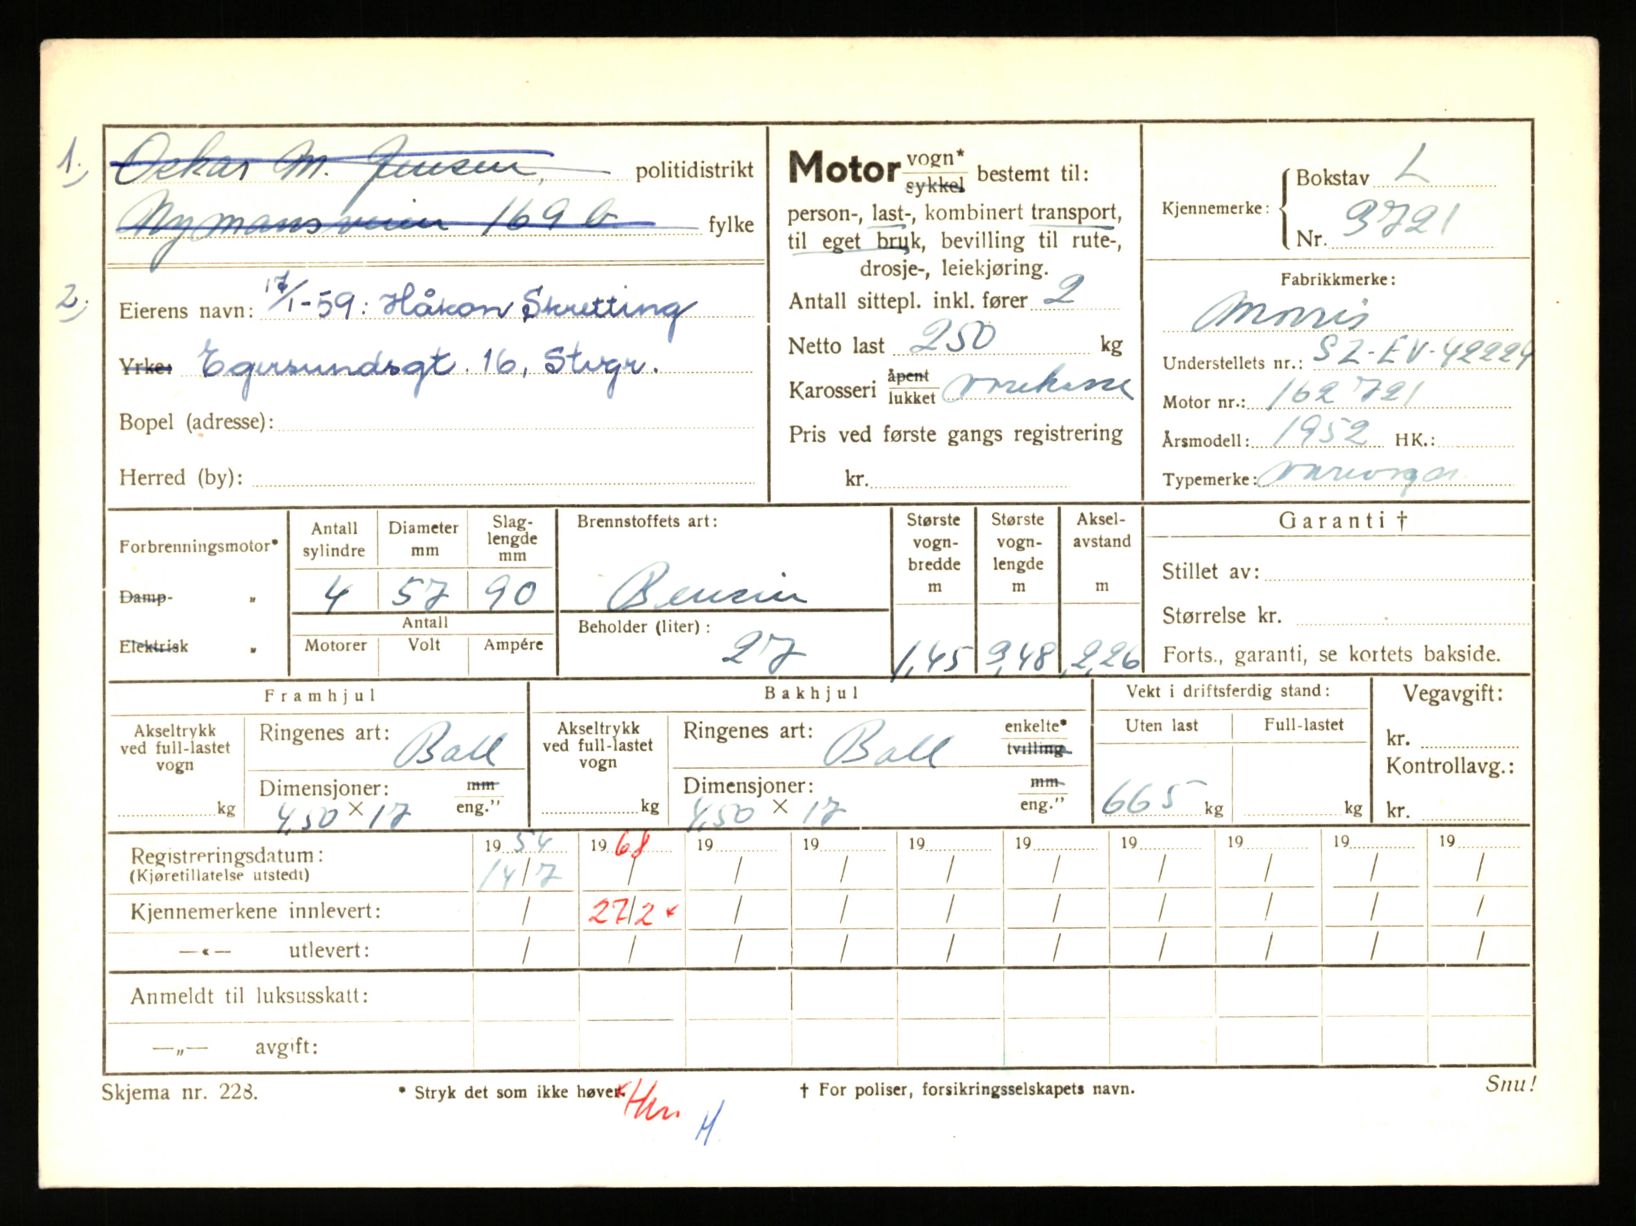 1.) Oskar M. Jensen, politidistrikt
Nymansveien 169 b fylke
2.) Eierens navn: 17/1-59: Håkon Skretting
Yrke: Egersundsgt. 16, Stvgr.
Bopel (adresse):
Herred (by):
Motor vogn* sykkel bestemt til:
person-, last-, kombinert transport,
til eget bruk, bevilling til rute-,
drosje-, leiekjøring.
Antall sittepl. inkl. fører 2
Netto last 250 kg
Karosseri åpent lukket varekasse
Pris ved første gangs registrering
kr.
Kjennemerke: Bokstav L
Nr. 3721
Fabrikkmerke:
Morris
Understellets nr.: SZ-EV-42224
Motor nr.: 162721
Årsmodell: 1952 HK.:
Typemerke: varevogn
Forbrenningsmotor*
Damp- "
Elektrisk "
Antall sylindre Diameter mm Slag-lengde mm
4 57 90
Antall
Motorer Volt Ampére
Brennstoffets art:
Bensin
Beholder (liter):
27
Største vogn-bredde m Største vogn-lengde m Aksel-avstand m
1,45 3,48 2,26
Garanti †
Stillet av:
Størrelse kr.
Forts., garanti, se kortets bakside.
Framhjul
Akseltrykk ved full-lastet vogn
kg
Ringenes art: Ball
Dimensjoner: mm
4,50 × 17 eng."
Bakhjul
Akseltrykk ved full-lastet vogn
kg
Ringenes art: Ball enkelte* tvilling
Dimensjoner: mm
4,50 × 17 eng."
Vekt i driftsferdig stand:
Uten last Full-lastet
665 kg kg
Vegavgift:
kr.
Kontrollavg.:
kr.
19 54 19 68 19 19 19 19 19 19 19 19
Registreringsdatum:
(Kjøretillatelse utstedt) 14/7 / / / / / / / / /
Kjennemerkene innlevert: / 27/2 / / / / / / / /
—«— utlevert: / / / / / / / / / /
Anmeldt til luksusskatt:
—„— avgift:
Skjema nr. 228. * Stryk det som ikke høver. † For poliser, forsikringsselskapets navn. Snu!
H